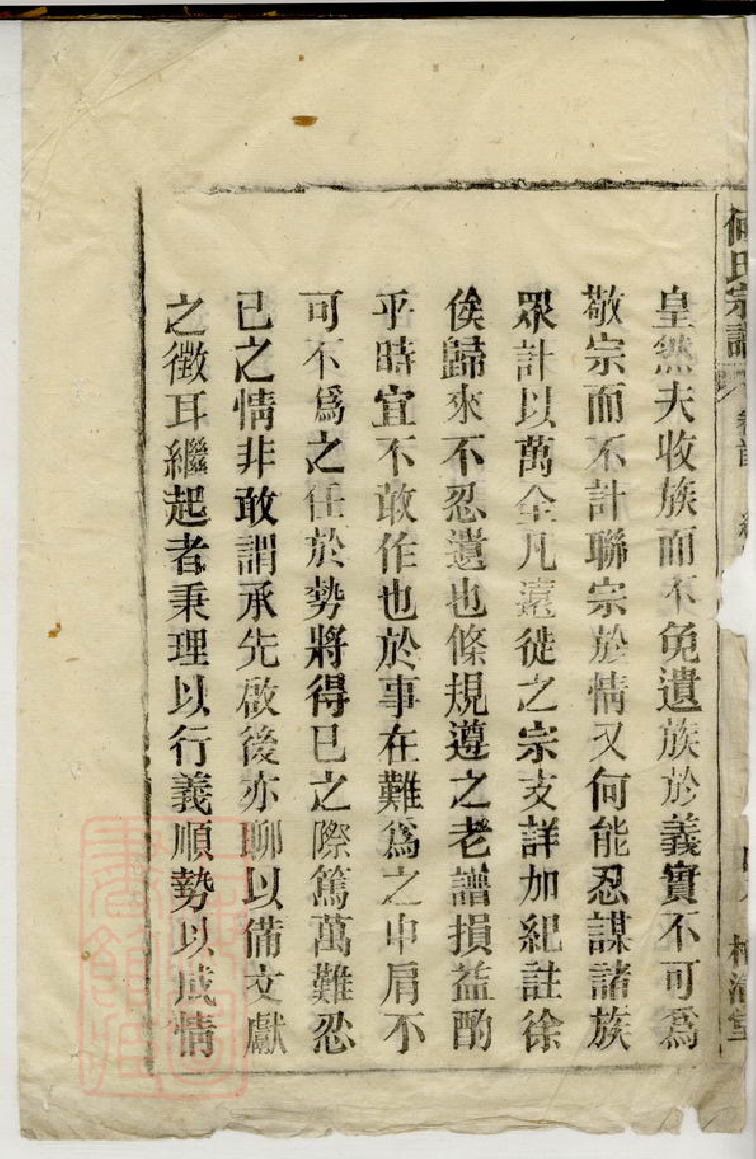 氏宗譜 卷首
皇然夫收族而不免遺族於義實不可爲
敬宗而不計聯宗於情又何能忍謀諸族
眾計以萬全凡遠徙之宗支詳加紀註徐
俟歸來不忍遺也條規遵之老譜損益酌
乎時宜不敢作也於事在難爲之中肩不
可不爲之任於勢將得已之際篤萬難忍
已之情非敢謂承先啟後亦聊以備文獻
之徵耳繼起者秉理以行義順勢以成情